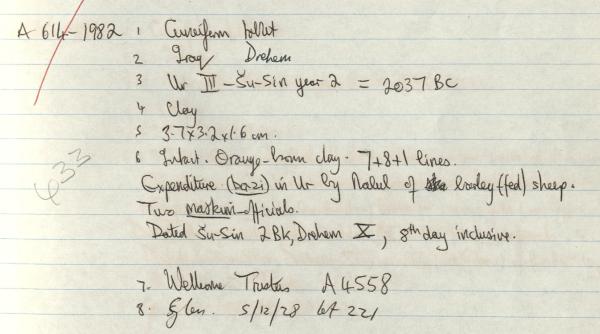 A 614-1982 1 Cuneiform tablet
2 Iraq Drehem
3 Ur III - Šu-Sin year 2 = 2037 BC
4 Clay
5 3.7 x 3.2 x 1.6 cm.
6 Intact. Orange-brown clay. 7+8+1 lines.
Expenditure (ba-zi) in Ur by Nalul of barley (fed) sheep.
Two maškim-officials.
Dated Šu-Sin 2 Bk, Drehem X, 8th day inclusive.
633
7. Wellcome Trustees A 4558
8. 5/12/28 lot 221